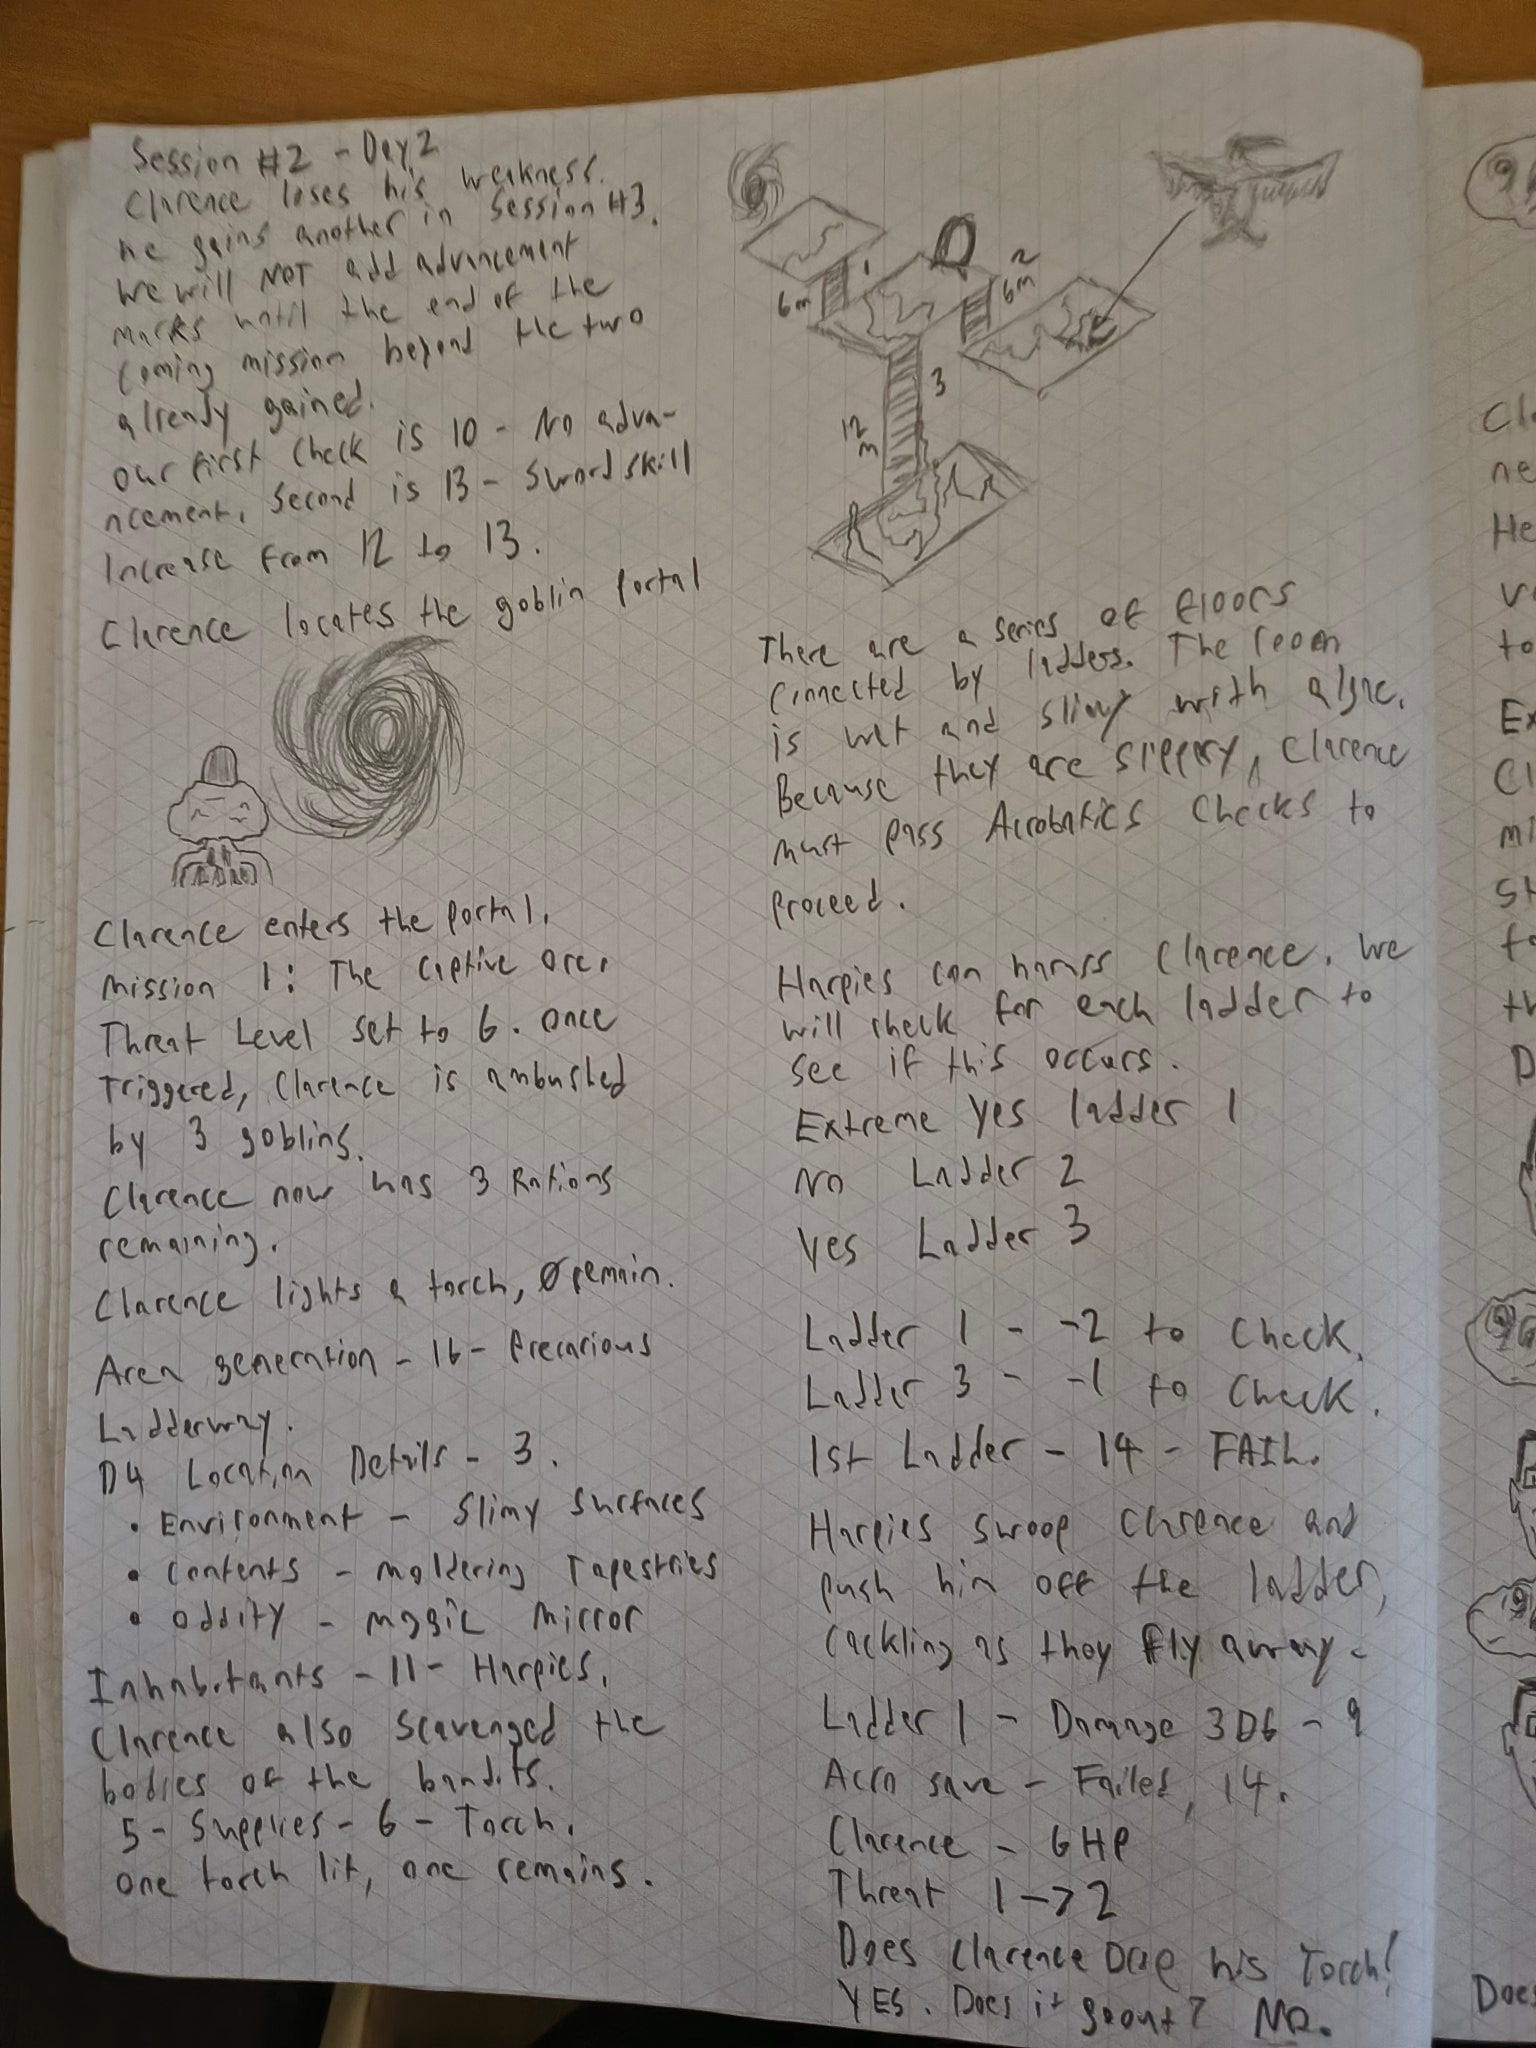 Session #2 - Day 2
Clarence loses his weakness.
He gains another in Session #3.
We will NOT add advancement
marks until the end of the
coming mission beyond the two
already gained.
Our first check is 10 - No adva-
ncement, Second is 13 - Sword skill
Increase from 12 to 13.
Clarence locates the goblin portal
Clarence enters the portal.
Mission 1: The captive orc.
Threat Level set to 6. Once
Triggered, Clarence is ambushed
by 3 goblins.
Clarence now has 3 Rations
remaining.
Clarence lights a torch, 0 remain.
Area generation - 16 - Precarious
Ladderway.
D4 Location Details - 3.
• Environment - Slimy Surfaces
• Contents - Moldering Tapestries
• Oddity - Magic Mirror
Inhabitants - 11 - Harpies.
Clarence also Scavenged the
bodies of the bandits.
5 - Supplies - 6 - Torch.
One torch lit, one remains.
1
6m
2
6m
3
12
m
There are a series of floors
connected by ladders. The room
is wet and slimy with algae.
Because they are slippery, Clarence
must pass Acrobatics Checks to
proceed.
Harpies can harass Clarence. We
will check for each ladder to
see if this occurs.
Extreme Yes Ladder 1
No Ladder 2
Yes Ladder 3
Ladder 1 - -2 to Check.
Ladder 3 - -1 to Check.
1st Ladder - 14 - FAIL.
Harpies swoop Clarence and
push him off the ladder,
cackling as they fly away.
Ladder 1 - Damage 3D6 - 9
Acro save - Failed, 14.
Clarence - 6 HP
Threat 1 -> 2
Does Clarence Drop his Torch?
YES. Does it go out? No.